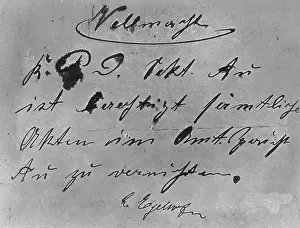 Vollmacht
K. P. D. Sekt. Au
ist berechtigt sämtliche
Akten im Amtsgericht
Au zu vernichten.